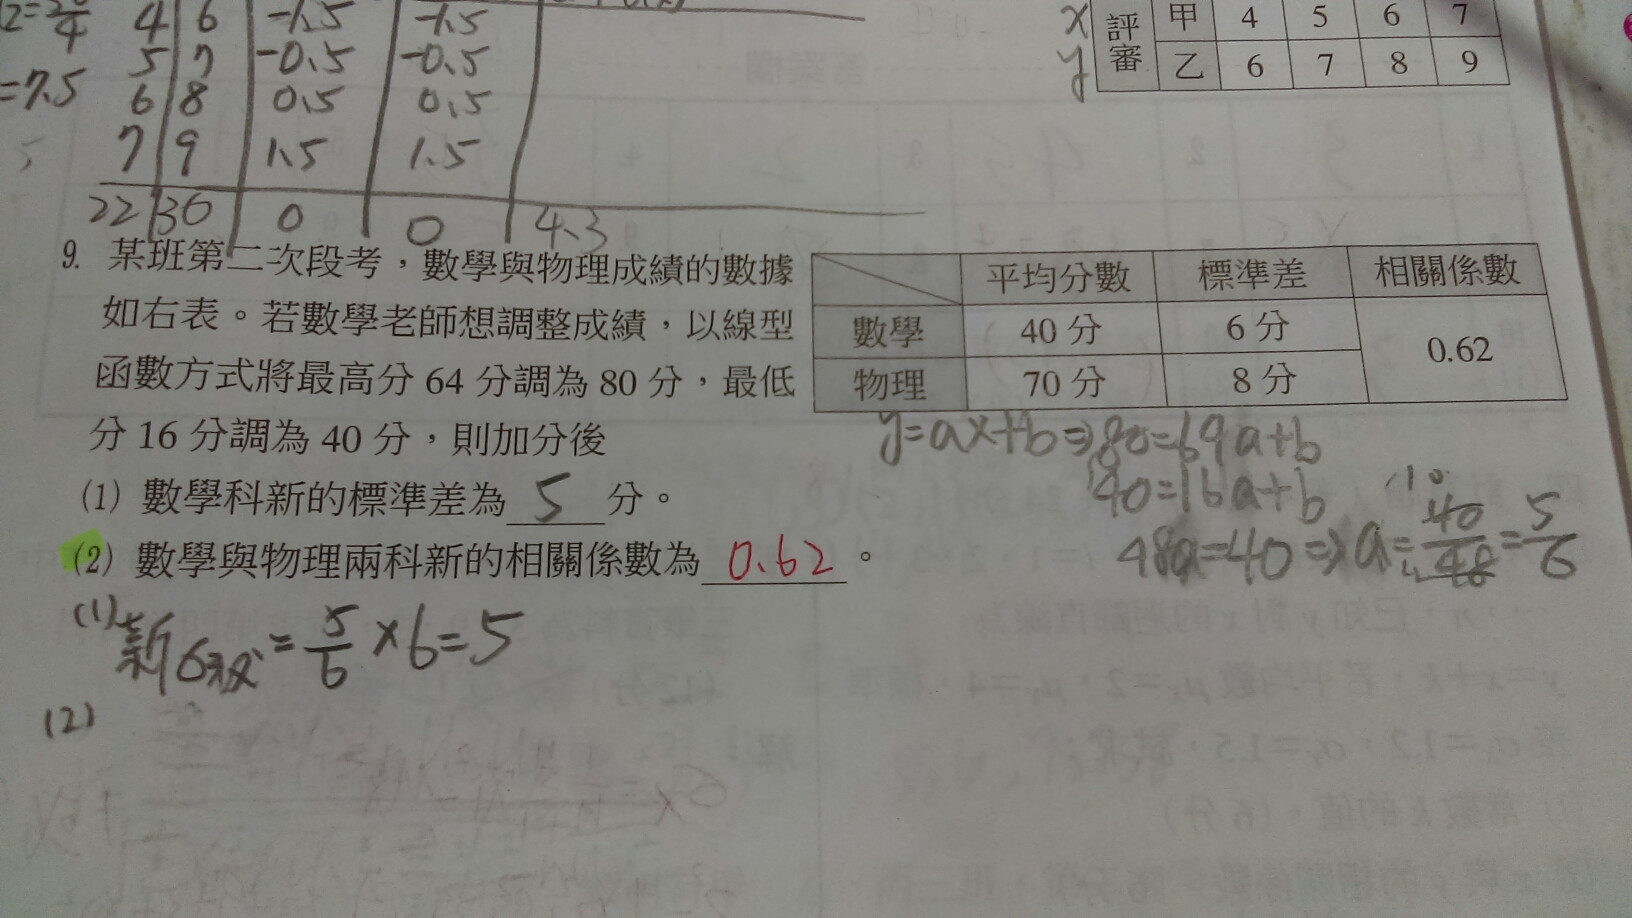 4 6 -1.5 -1.5
5 7 -0.5 -0.5
=7.5 6 8 0.5 0.5
7 9 1.5 1.5
22 30 0 0 4.3
x 評審 甲 4 5 6 7
y 乙 6 7 8 9
9. 某班第二次段考，數學與物理成績的數據
如右表。若數學老師想調整成績，以線型
函數方式將最高分 64 分調為 80 分，最低
分 16 分調為 40 分，則加分後
(1) 數學科新的標準差為 5 分。
(2) 數學與物理兩科新的相關係數為 0.62 。
平均分數 標準差 相關係數
數學 40 分 6 分 0.62
物理 70 分 8 分
y=ax+b⇒80=69a+b
40=16a+b
48a=40⇒a=40/48=5/6
10
(1) 新6 =5/6×6=5
(2)